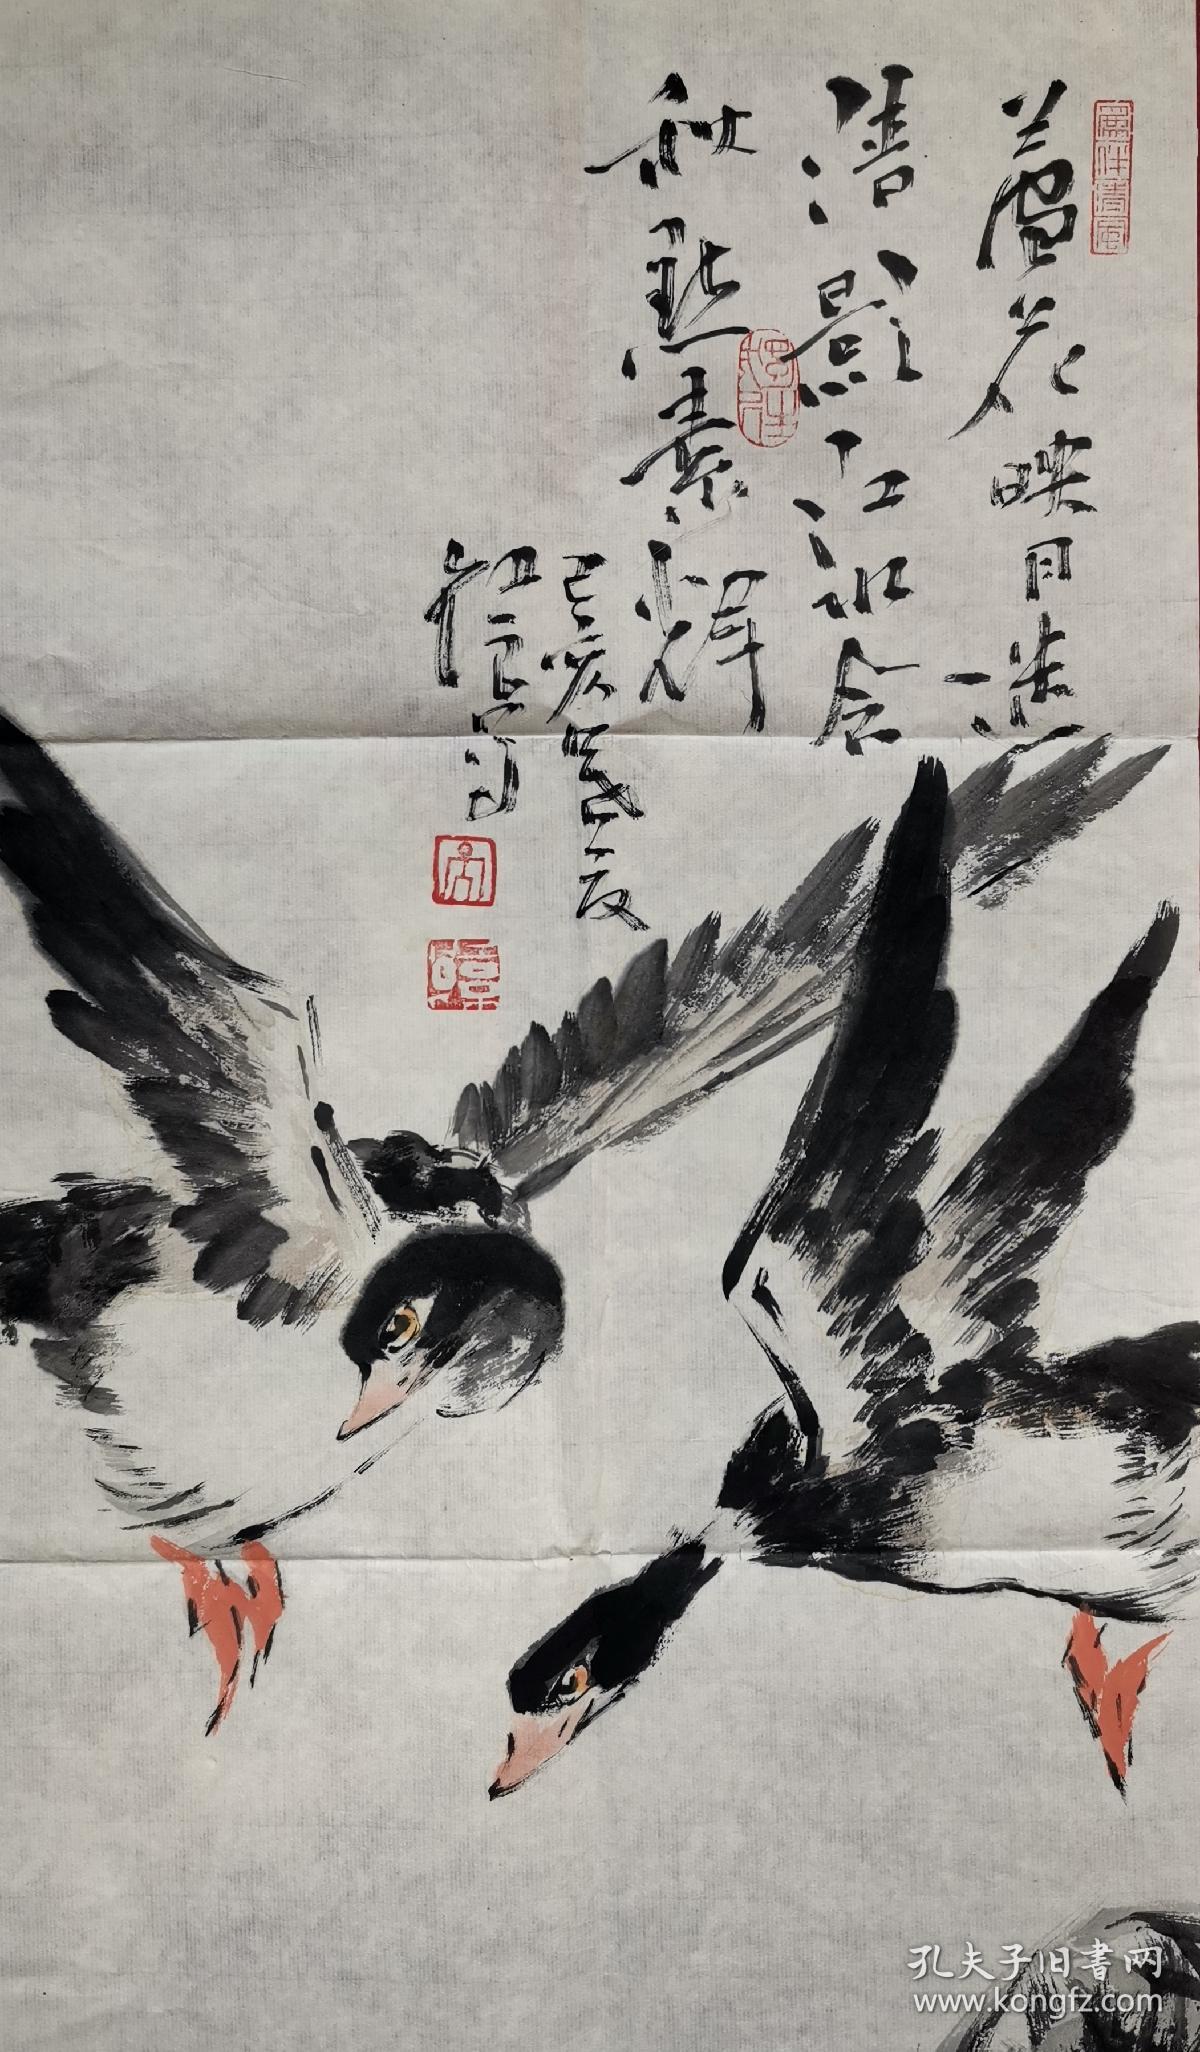 蘆花映月迷
清影江水含
秋點素輝
己亥
孔夫子旧书网
www.kongfz.com